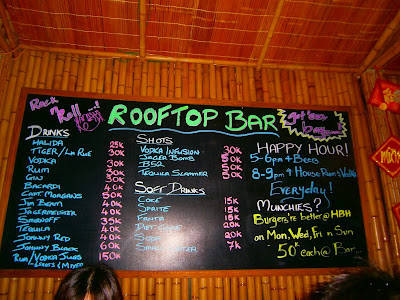 Rock
n
Roll
ROOFTOP BAR
DRINKS
HALIDA 25K
TIGER/LA RUE 30K
VODKA 30K
RUM 30K
GIN 30K
BACARDI 40K
CAPT. MORGANS 50K
JIM BEAM 40K
JAGERMEISTER 40K
SMIRNOFF 35K
TEQUILA 40K
JOHNNY RED 40K
JOHNNY BLACK 60K
RUM/VODKA JUGS 150K
SHOTS
VODKA INFUSION 30K
JAGER BOMB 50K
B52 50K
TEQUILA SLAMMER 30K
SOFT DRINKS
COKE 15K
SPRITE 15K
FANTA 15K
DIET COKE
SODA
WATER 7K
HAPPY HOUR!
5-6pm 4 Beers
8-9pm 4 House Rum & Vodka
Everyday!
MUNCHIES?
Burgers're better @ HBH
on Mon, Wed, Fri n Sun
50K each @ Bar...